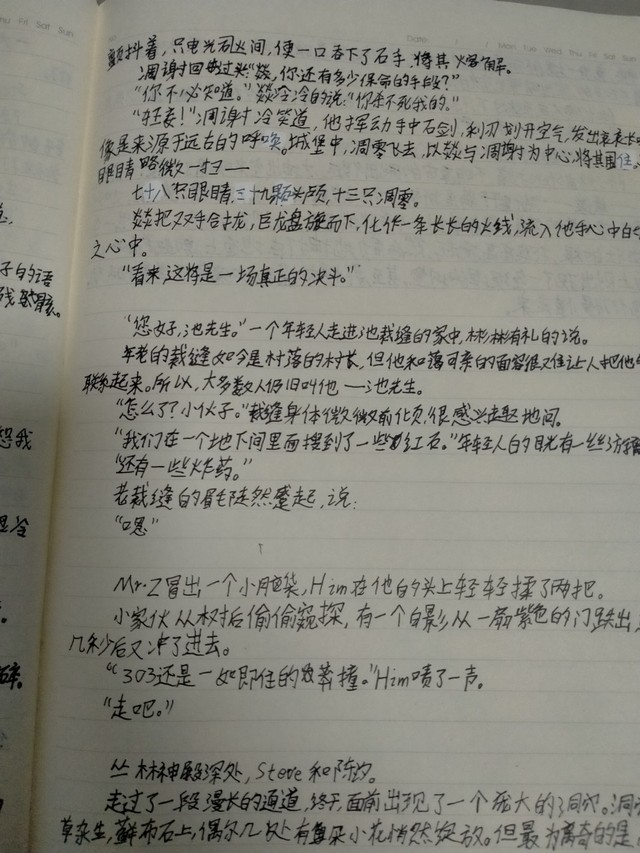 Thu Fri Sat Sun
Mon Tue Wed Thu Fri Sa
抖着,只电光石火间,便一口吞下了石手,将其熔解。
凋谢时回过头:“燚,你还有多少保命的手段?”
“你不必知道。”燚冷冷的说:“你杀不死我的。”
“狂妄!”凋谢时冷笑道,他挥动手中石剑,利刃划开空气,发出哀
像是来源于远古的呼唤。城堡中,凋零飞去,以燚与凋谢时为中心,将其围住。
眼睛略微一扫——
七十八只眼睛,三十九颗头颅,十三只凋零。
燚把双手合拢,巨龙盘旋而下,化作一条长长的火线,流入他手心中的
之心中。
“看来,这将是一场真正的决斗。”
“您好,池先生。”一个年轻人走进池裁缝的家中,彬彬有礼的说。
年老的裁缝如今是村落的村长,但他和蔼可亲的面容很难让人把他
联系起来。所以,大多数人仍旧叫他——池先生。
“怎么了?小伙子。”裁缝身体微微前倾,很感兴趣地问。
“我们在一个地下间里面搜到了一些红石。”年轻人的目光有一丝
“还有一些炸药。”
老裁缝的眉毛陡然蹙起,说:
“嗯”
Mr.Z冒出一个小脑袋,Him在他的头上轻轻揉了两把。
小家伙从树后偷偷窥探,有一个白影从一扇紫色的门跌出,
几秒少后又冲了进去。
“303还是一如即往的莽撞。”Him啧了一声。
“走吧。”
丛林神殿深处,Steve和陈
走过了一段漫长的通道,终于,面前出现了一个庞大的洞穴。洞
草杂生,藓布石上,偶尔几处有几朵小花悄然绽放。但最为离奇的是,
子的语